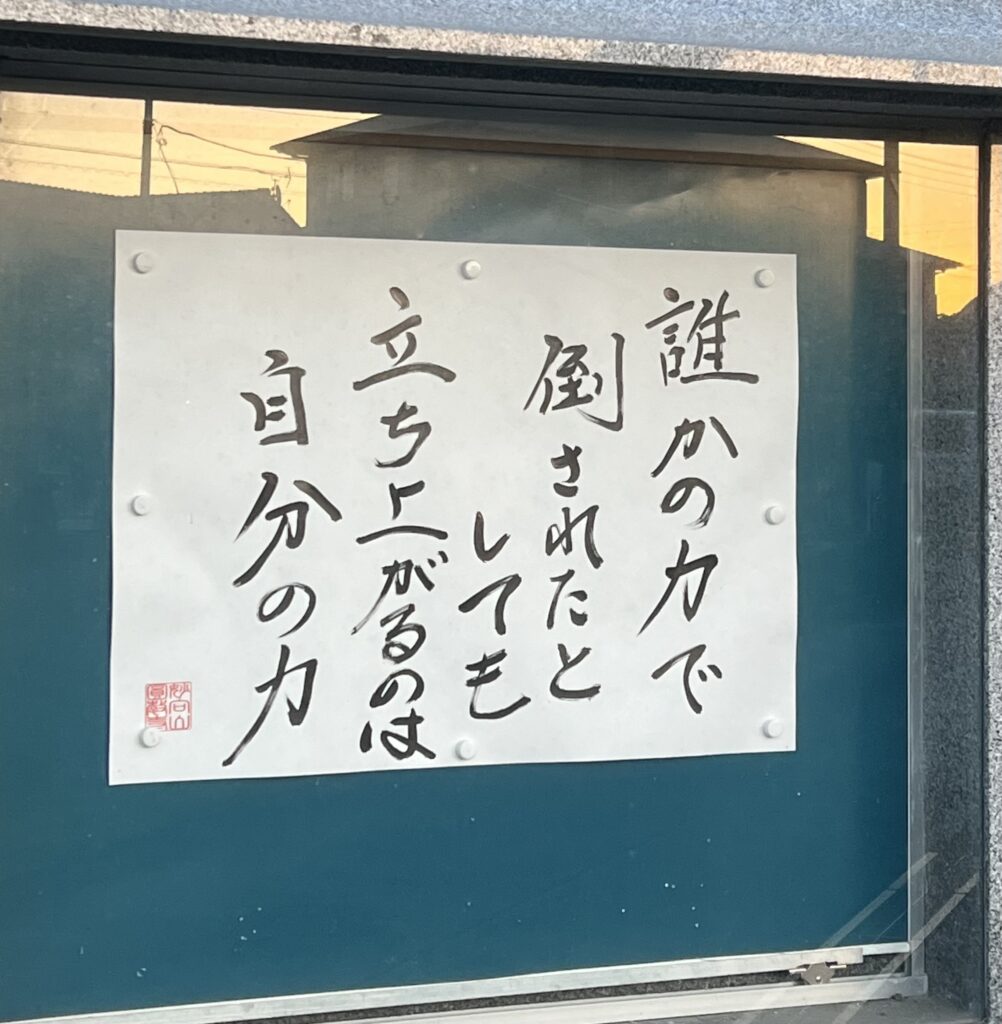 誰かの力で
倒されたと
しても
立ち上がるのは
自分の力